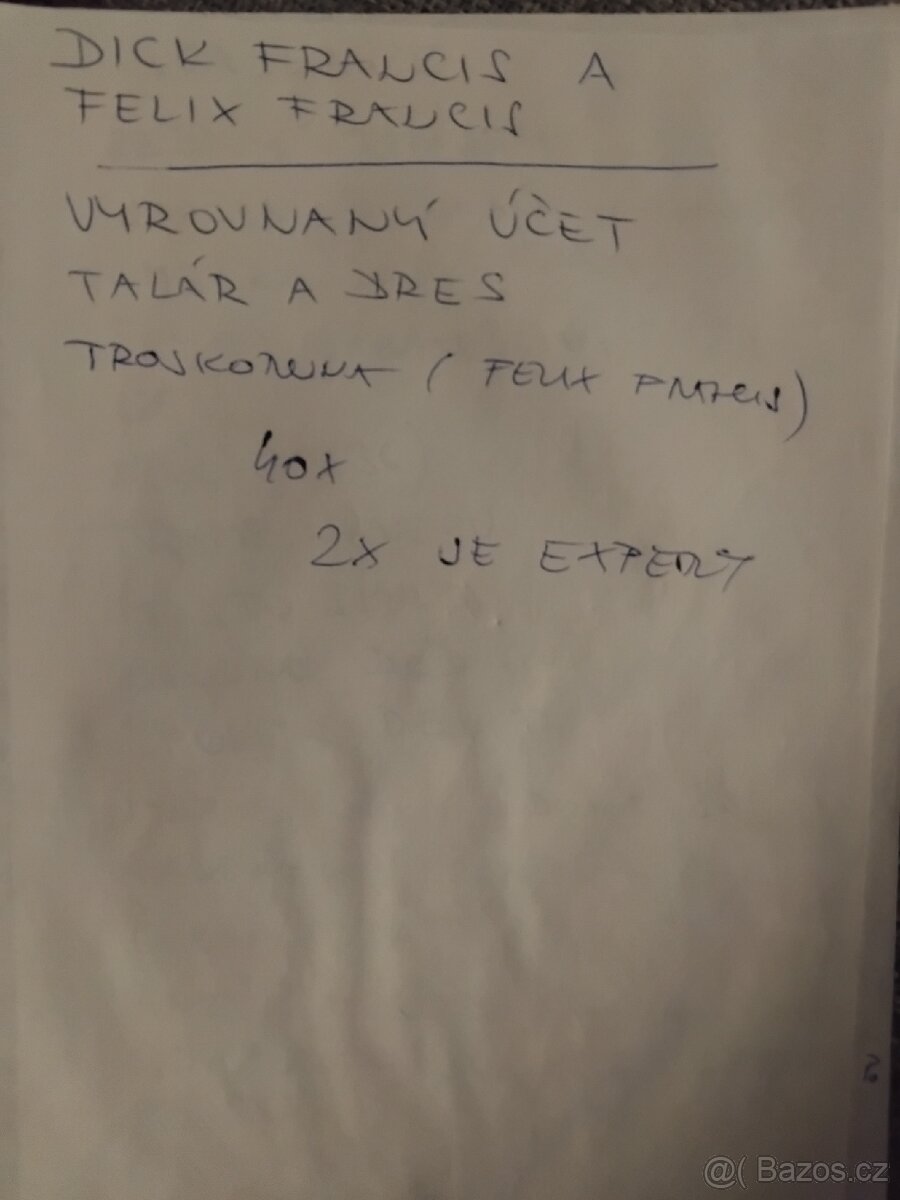 DICK FRANCIS A
FELIX FRANCIS
VYROVNANÝ ÚČET
TALÁR A DRES
TROJKORUNA ( FELIX FRANCIS)
40X
2X JE EXPERT
@( Bazos.cz